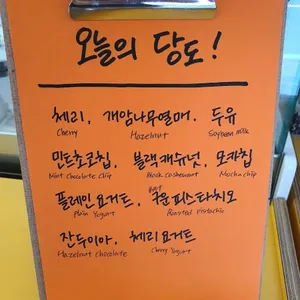 오늘의 당도!
체리, 개암나무열매, 두유
Cherry Hazelnut Soybean milk
민트초코칩, 블랙캐슈넛, 모카칩
Mint chocolate chip Black cashewnut Mocha chip
플레인 요거트, 구운피스타치오
Plain Yogurt Roasted pistachio
잔두이아, 체리요거트
Hazelnut chocolate Cherry Yogurt